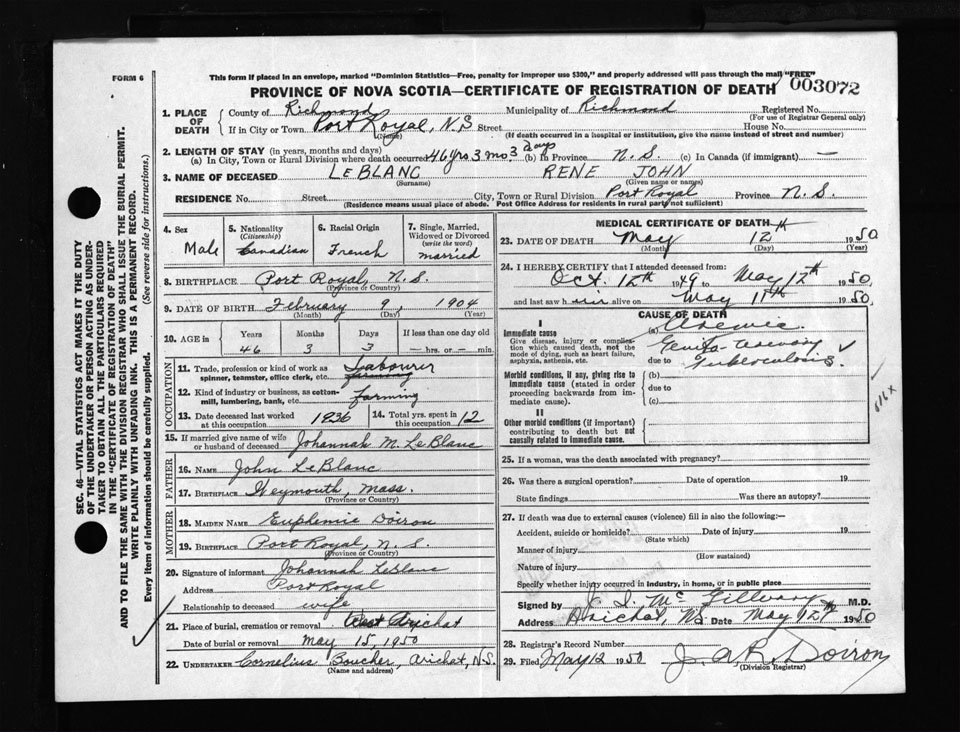 FORM 6
This form if placed in an envelope, marked "Dominion Statistics—Free, penalty for improper use $300," and properly addressed will pass through the mail "FREE"
PROVINCE OF NOVA SCOTIA—CERTIFICATE OF REGISTRATION OF DEATH 003072
1. PLACE OF DEATH
County of Richmond Municipality of Richmond Registered No.
(For use of Registrar General only)
If in City or Town Port Royal, N.S Street House No.
(Name) (If death occurred in a hospital or institution, give the name instead of street and number)
2. LENGTH OF STAY (in years, months and days)
(a) In City, Town or Rural Division where death occurred 46 yrs 3 mo. 3 days (b) In Province N.S. (c) In Canada (if immigrant) —
3. NAME OF DECEASED LEBLANC RENE JOHN
(Surname) (Given name or names)
RESIDENCE No. Street City, Town or Rural Division Port Royal Province N.S.
(Residence means usual place of abode. Post Office Address for residents in rural parts not sufficient)
SEC. 46—VITAL STATISTICS ACT MAKES IT THE DUTY
OF THE UNDERTAKER OR PERSON ACTING AS UNDER-
TAKER TO OBTAIN ALL THE PARTICULARS REQUIRED
IN THE "CERTIFICATE OF REGISTRATION OF DEATH"
AND TO FILE THE SAME WITH THE DIVISION REGISTRAR WHO SHALL ISSUE THE BURIAL PERMIT.
WRITE PLAINLY WITH UNFADING INK. THIS IS A PERMANENT RECORD.
Every item of information should be carefully supplied. (See reverse side for instructions.)
4. Sex Male
5. Nationality (Citizenship) Canadian
6. Racial Origin French
7. Single, Married, Widowed or Divorced (write the word) married
8. BIRTHPLACE Port Royal, N.S.
(Province or Country)
9. DATE OF BIRTH February 9 1904
(Month) (Day) (Year)
10. AGE in Years Months Days If less than one day old
46 3 3 — hrs. or — min.
OCCUPATION
11. Trade, profession or kind of work as spinner, teamster, office clerk, etc. Labourer farming
12. Kind of industry or business, as cotton-mill, lumbering, bank, etc. farming
13. Date deceased last worked at this occupation 1936
14. Total yrs. spent in this occupation 12
15. If married give name of wife or husband of deceased Johannah M. LeBlanc
FATHER
16. NAME John LeBlanc
17. BIRTHPLACE Weymouth, Mass.
(Province or Country)
MOTHER
18. MAIDEN NAME Euphemie Doiron
19. BIRTHPLACE Port Royal, N.S.
(Province or Country)
20. Signature of informant Johannah LeBlanc
Address Port Royal
Relationship to deceased wife
21. Place of burial, cremation or removal West Arichat
Date of burial or removal May 15, 1950
22. UNDERTAKER Cornelius Boucher, Arichat, N.S.
(Name and address)
MEDICAL CERTIFICATE OF DEATH
23. DATE OF DEATH May 12th 1950
(Month) (Day) (Year)
24. I HEREBY CERTIFY that I attended deceased from:
Oct. 12th 1949 to May 12th 1950,
and last saw him alive on May 11th 1950,
CAUSE OF DEATH
I
Immediate cause
Give disease, injury or complication which caused death, not the mode of dying, such as heart failure, asphyxia, asthenia, etc.
(a)
due to Tuberculosis
Morbid conditions, if any, giving rise to immediate cause (stated in order proceeding backwards from immediate cause).
(b)
due to
(c)
II
Other morbid conditions (if important) contributing to death but not causally related to immediate cause.
016x
25. If a woman, was the death associated with pregnancy?
26. Was there a surgical operation? Date of operation 19
State findings Was there an autopsy?
27. If death was due to external causes (violence) fill in also the following:—
Accident, suicide or homicide? Date of injury 19
(State which)
Manner of injury
(How sustained)
Nature of injury
Specify whether injury occurred in industry, in home, or in public place
Signed by McGillvary M.D.
Address Arichat, NS Date May 12th 1950
28. Registrar's Record Number
29. Filed May 12 1950 J. A. R. Doiron
(Division Registrar)